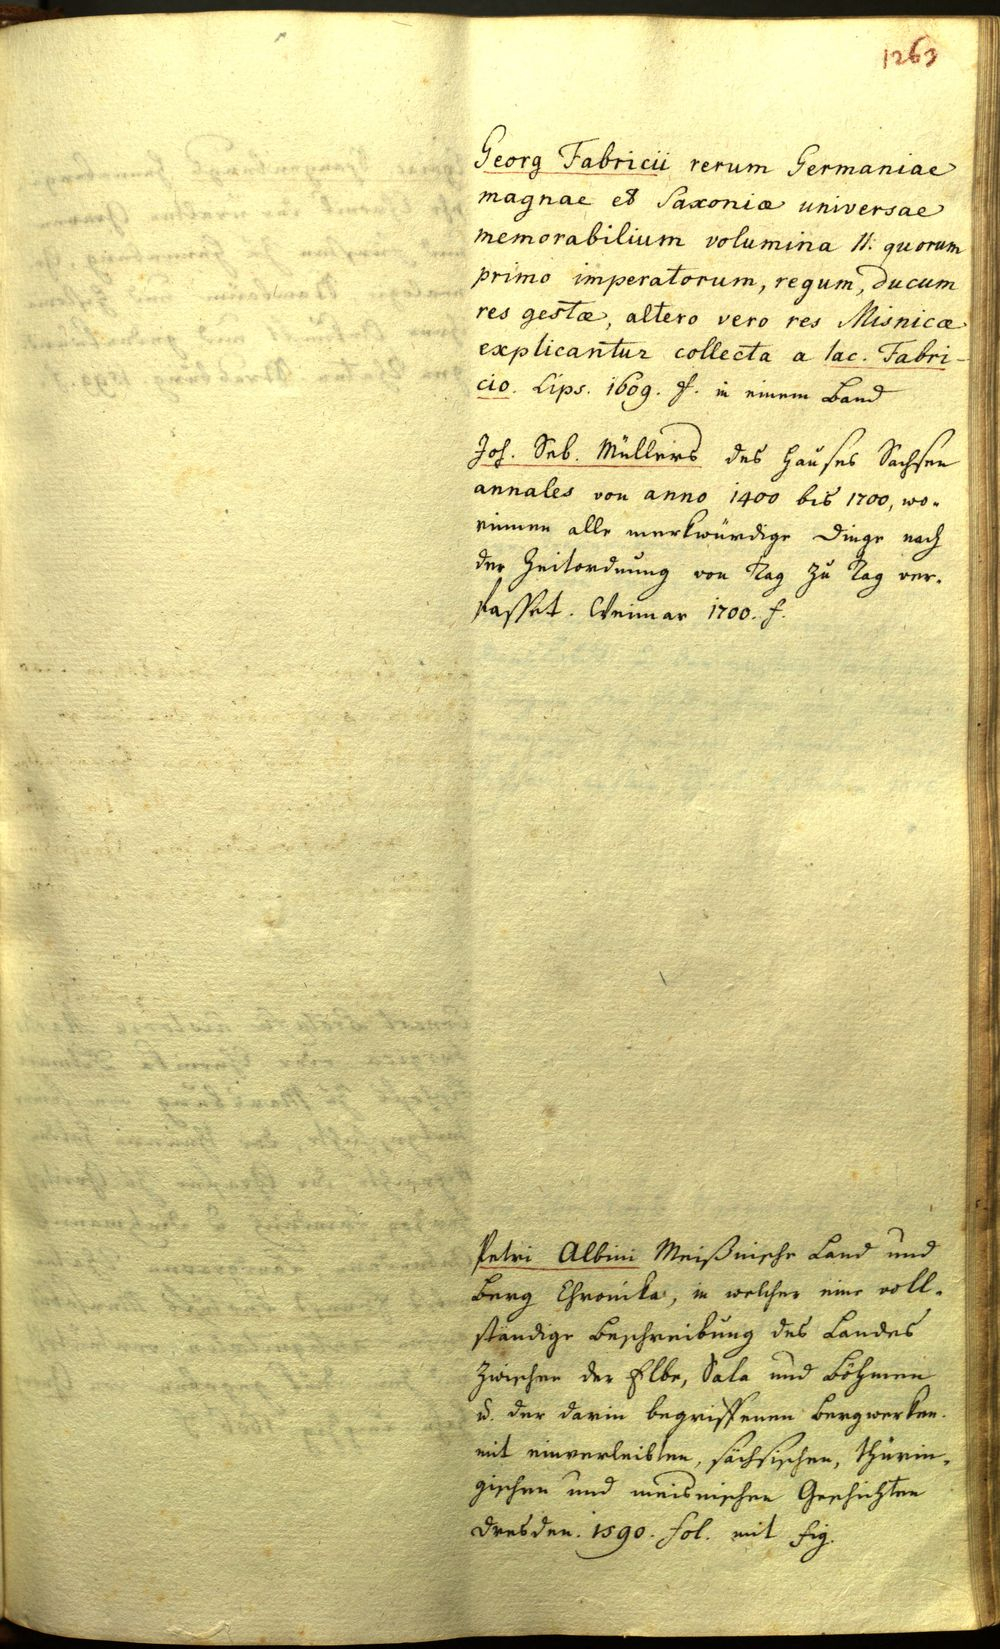 1263
Georg Fabricii rerum Germaniae
magnae et Saxoniæ universae
memorabilium volumina II. quorum
primo imperatorum, regum, ducum
res gestæ, altero vero res Misnicæ
explicantur collecta a Iac. Fabri-
cio. Lips. 1609. f. in einem Band
Joh. Seb. Müllers des Hauses Sachsen
annales von anno 1400 bis 1700, wo-
rinnen alle merkwürdige Dinge nach
der Zeitordnung von Tag zu Tag ver-
fasset. Weimar 1700. f.
Petri Albini Meißnische Land und
Berg Chronika, in welcher eine voll-
ständige Beschreibung des Landes
zwischen der Elbe, Sala und Böhmen
u. der darin begriffenen Bergwerken.
mit einverleibten, sächsischen, thürin-
gischen und meisnischen Geschichten
Dresden. 1590. fol. mit fig.